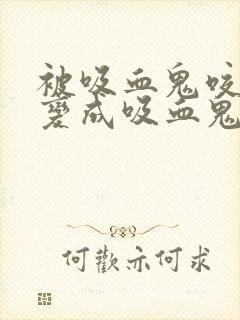 被吸血鬼咬
變成吸血鬼
何歡亦何求